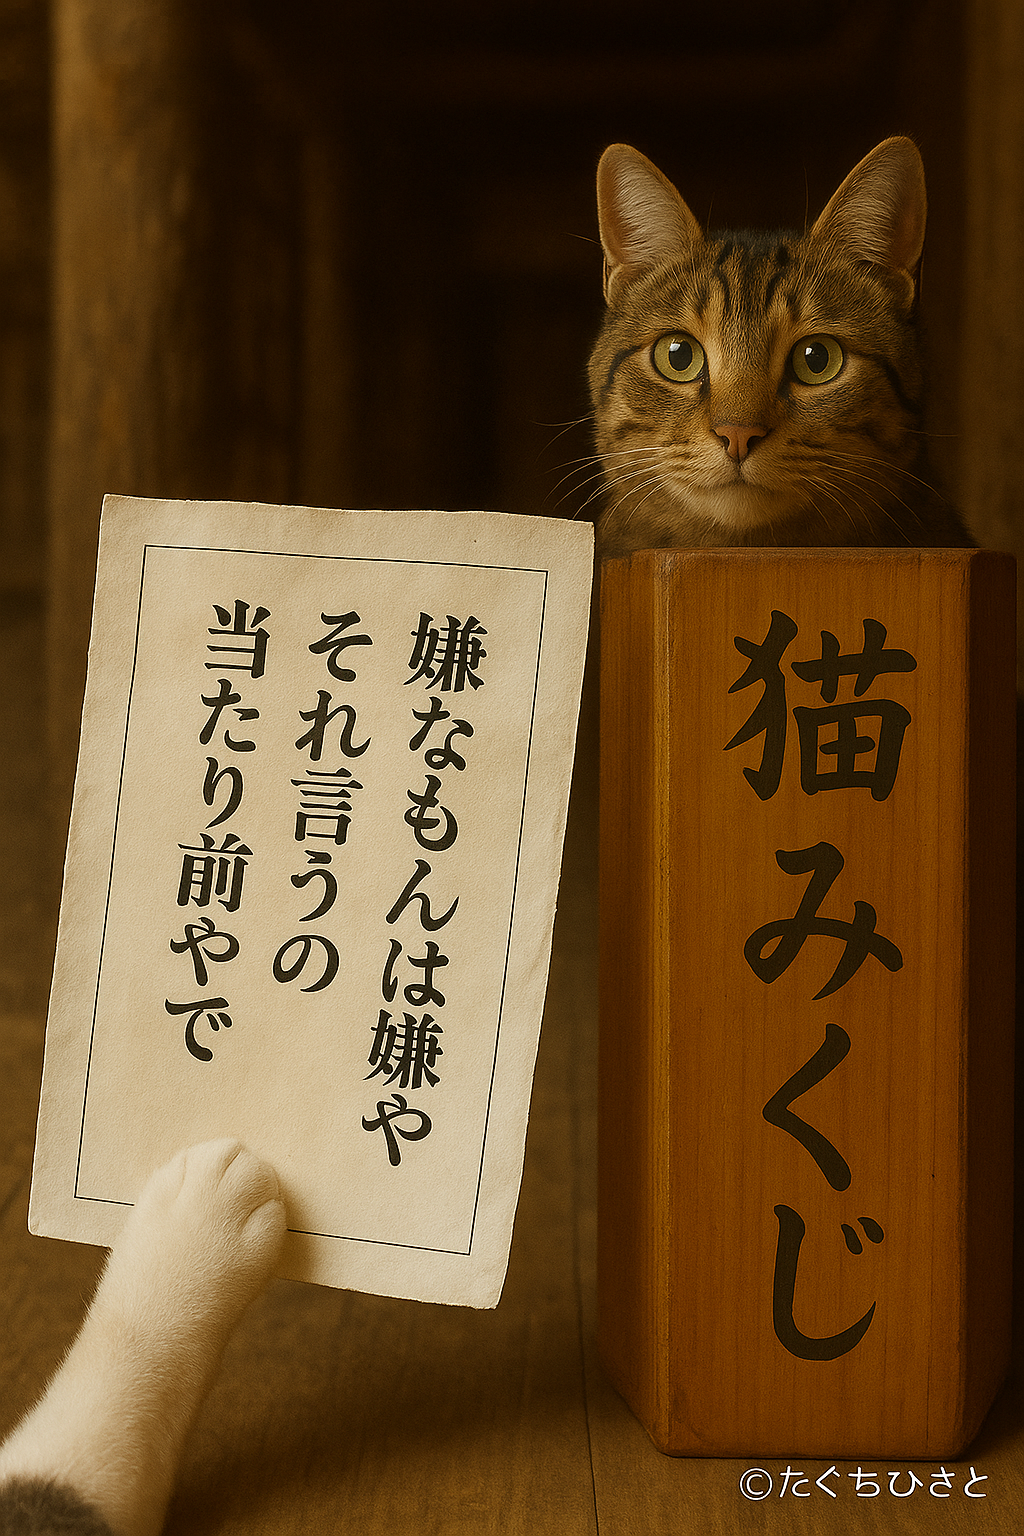 嫌なもんは嫌や
それ言うの
当たり前やで
猫みくじ
©たぐちひさと